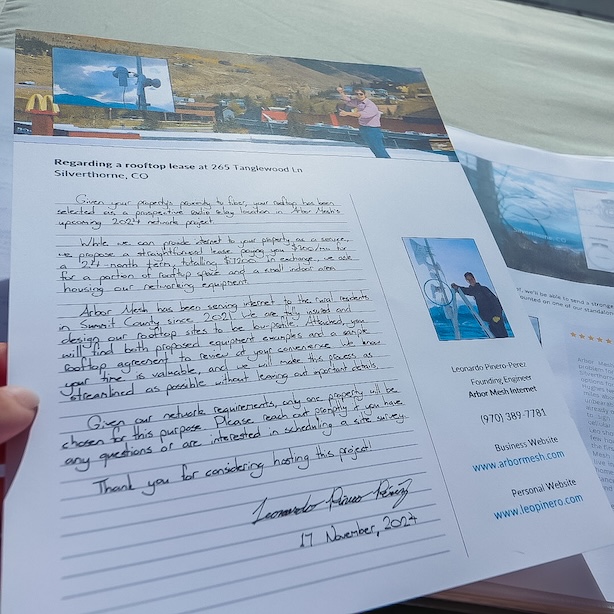 Regarding a rooftop lease at 265 Tanglewood Ln
Silverthorne, CO
Given your property's proximity to fiber, your rooftop has been
selected as a prospective radio relay location in Arbor Mesh's
upcoming 2024 network project.
While we can provide internet to your property as a service,
we propose a straightforward lease, paying you $100/mo for
a 24-month term, totalling In exchange, we ask
for a portion of rooftop space and a small indoor area
housing our networking equipment.
Arbor Mesh has been serving internet to the rural residents
in Summit County since 2021. We are fully insured and
design our rooftop sites to be low-profile. Attached, you
will find both proposed equipment examples and a sample
rooftop agreement to review at your convenience. We know
your time is valuable, and we will make this process as
streamlined as possible without leaving out important details.
Given our network requirements, only one property will be
chosen for this purpose. Please reach out promptly if you have
any questions or are interested in scheduling a site survey.
Thank you for considering hosting this project!
Leonardo Pinero Pérez
17 November, 2024
Leonardo Pinero-Perez
Founding Engineer
Arbor Mesh Internet
(970) 389-7781
Business Website
www.arbormesh.com
Personal Website
www.leopinero.com
we'll be able to send a strong
ounted on one of our standalon
Arbor Mesh